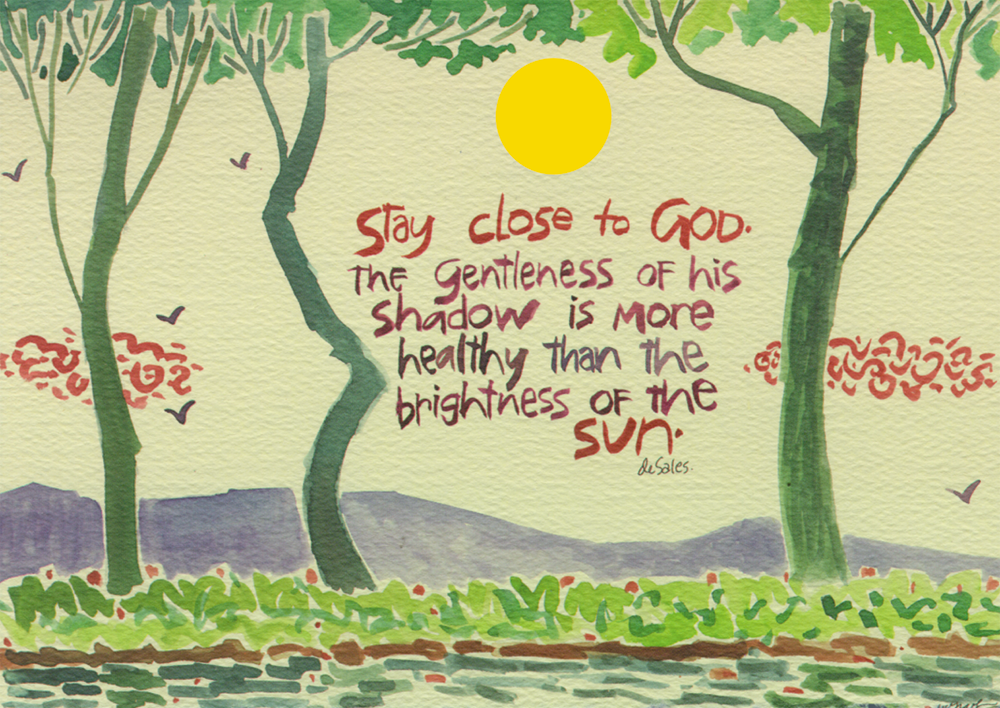 Stay close to GOD.
The gentleness of his
shadow is more
healthy than the
brightness of the
sun.
deSales.